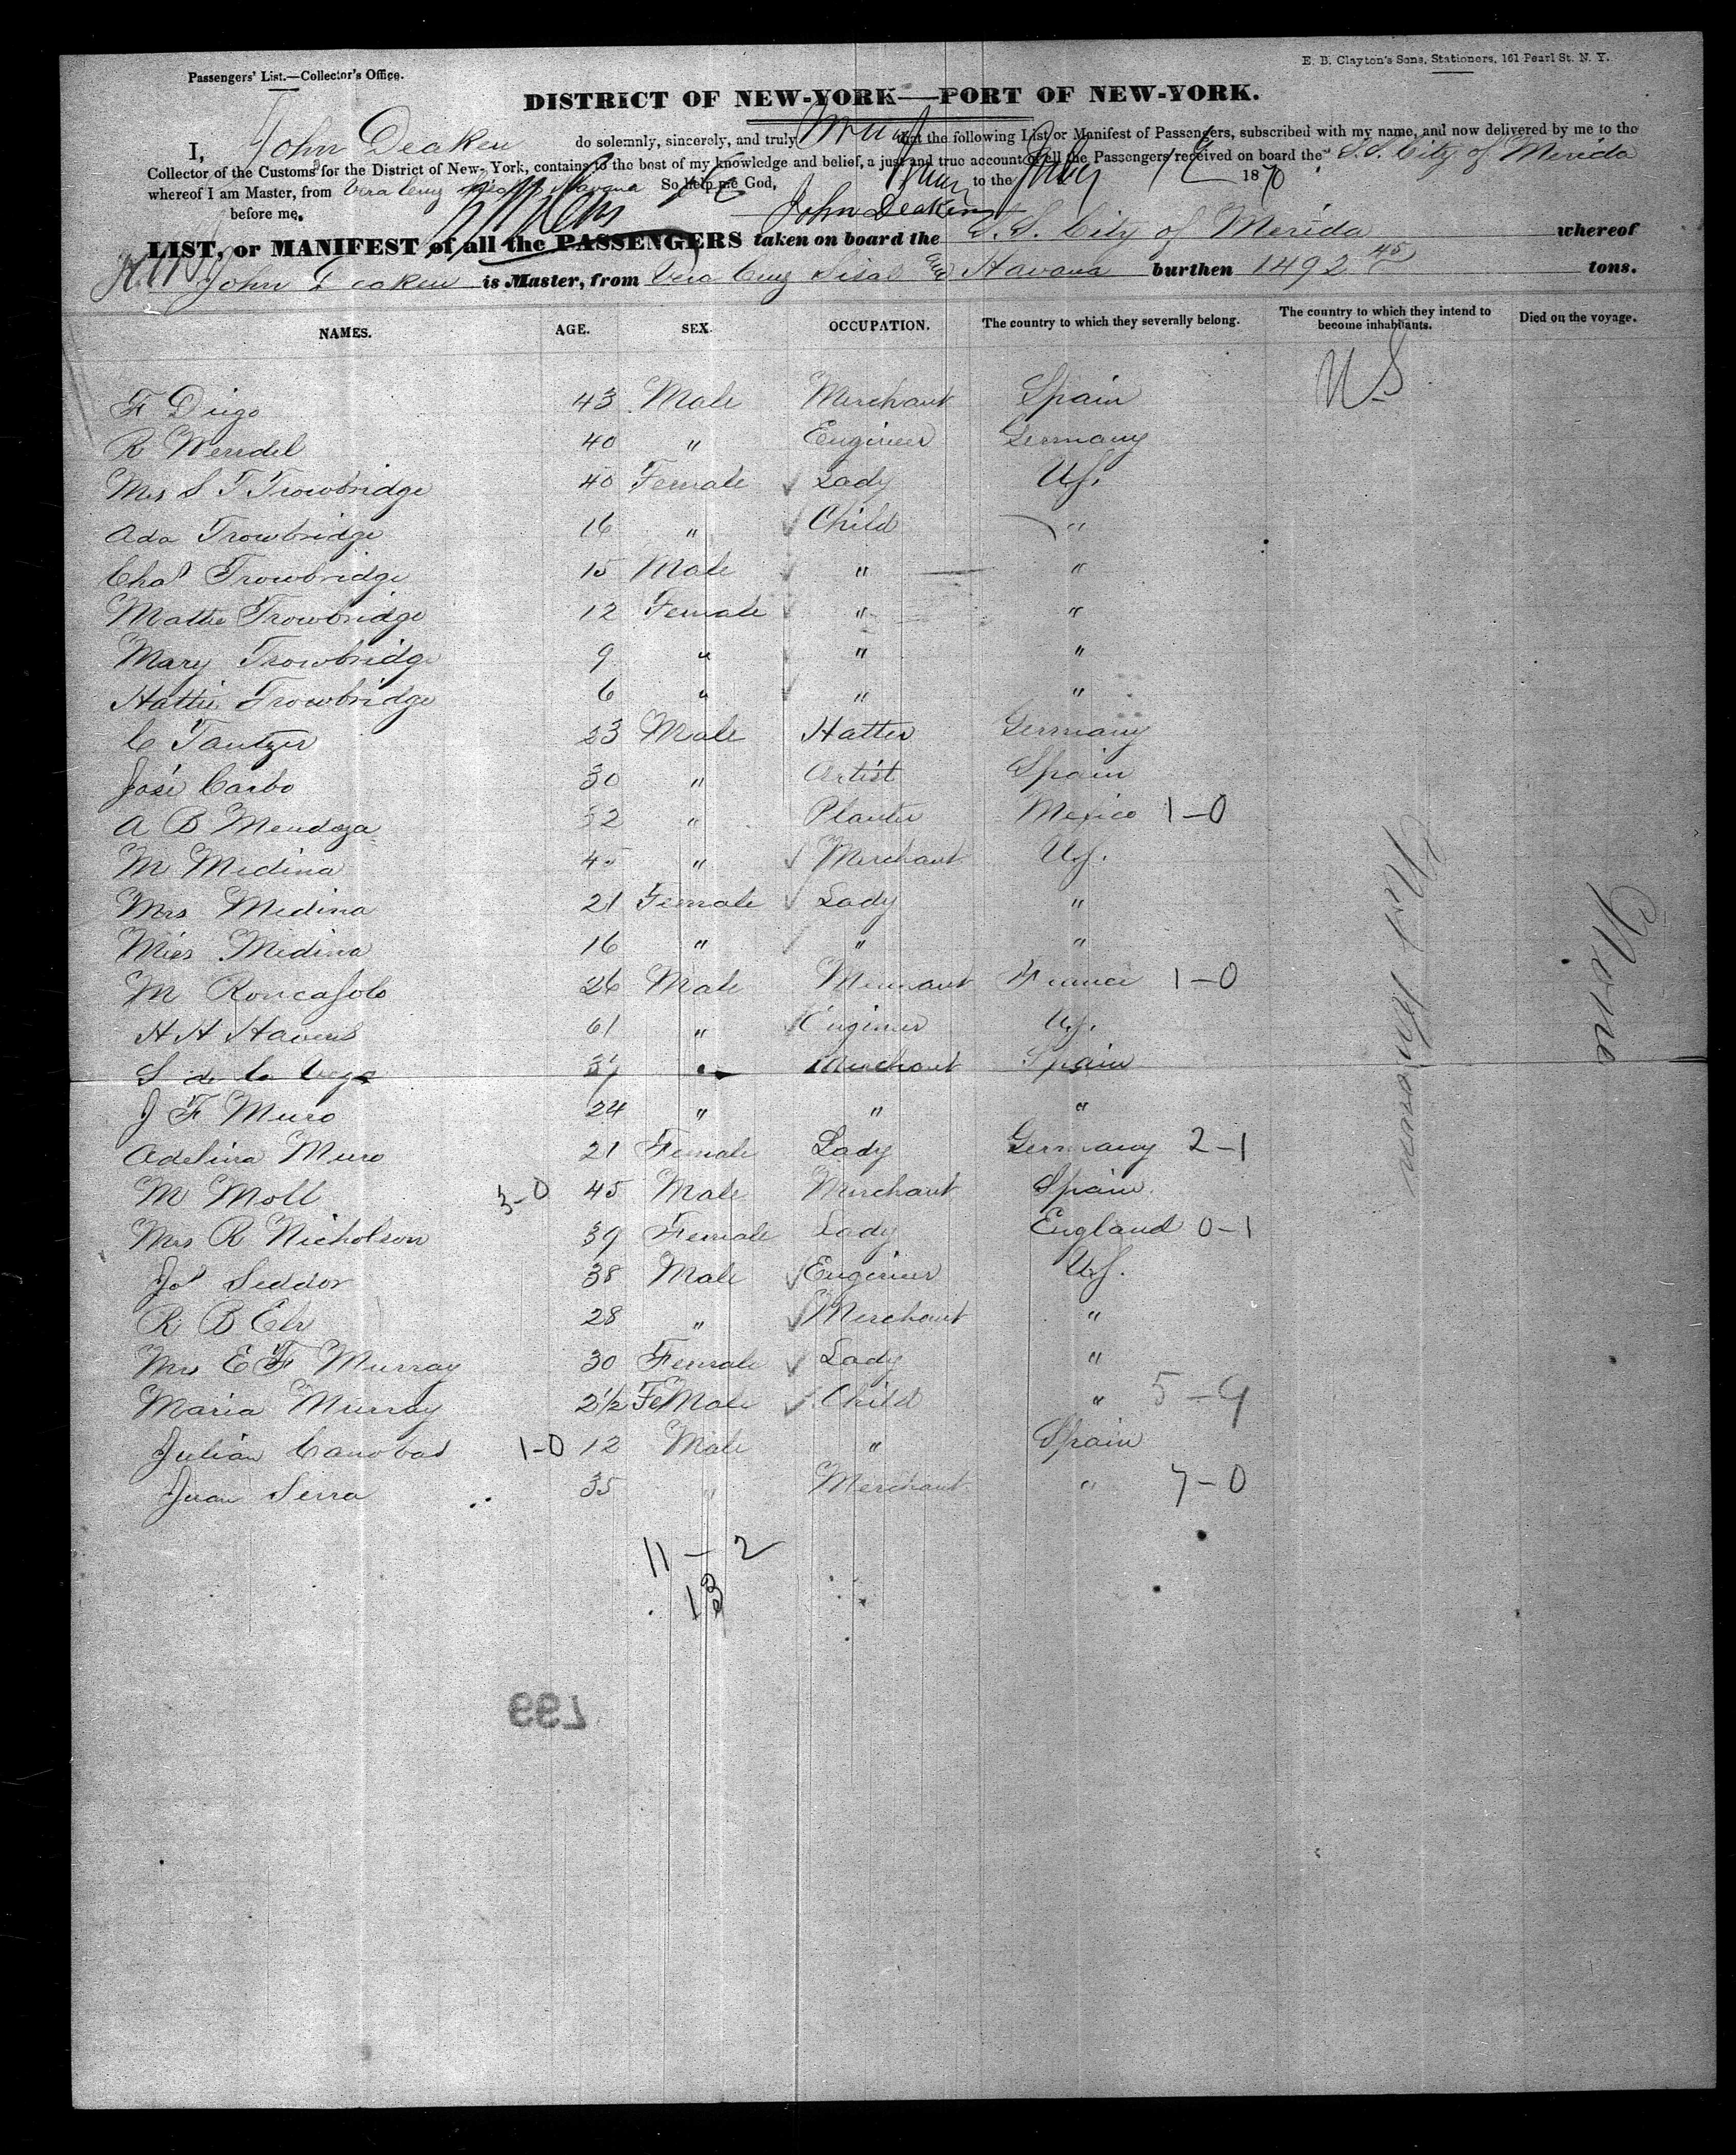 Passengers' List.—Collector's Office.
E. B. Clayton's Sons, Stationers, 161 Pearl St. N. Y.
DISTRICT OF NEW-YORK—PORT OF NEW-YORK.
I, John Deaken do solemnly, sincerely, and truly that the following List or Manifest of Passengers, subscribed with my name, and now delivered by me to the
Collector of the Customs for the District of New-York, contains to the best of my knowledge and belief, a just and true account of all the Passengers received on board the S.S. City of Merida
whereof I am Master, from Vera Cruz Havana So help me God,
to the July 1870
before me. John Deaken
LIST, or MANIFEST of all the PASSENGERS taken on board the S.S. City of Merida whereof
John Deaken is Master, from Vera Cruz Sisal and Havana burthen 1492 45 tons.
NAMES. AGE. SEX. OCCUPATION. The country to which they severally belong. The country to which they intend to become inhabitants. Died on the voyage.
F Diego 43 Male Merchant Spain U.S
R Wendel 40 " Engineer Germany
Mrs S T Trowbridge 40 Female Lady U.S.
Ada Trowbridge 16 " Child "
Chas Trowbridge 15 Male " "
Mattie Trowbridge 12 Female " "
Mary Trowbridge 9 " " "
Hattie Trowbridge 6 " " "
C Tautzer 23 Male Hatter Germany
José Carbo 30 " Artist Spain
A B Mendoza 32 " Planter Mexico 1-0
M Medina 45 " Merchant U.S.
Mrs Medina 21 Female Lady "
Miss Medina 16 " " "
M Roncasolo 26 Male Merchant France 1-0
H H Havens 61 " Engineer U.S.
S de la Vega 37 " Merchant Spain
J F Muro 24 " " "
Adelina Muro 21 Female Lady Germany 2-1
M Moll 3-0 45 Male Merchant Spain
Mrs R Nicholson 39 Female Lady England 0-1
Jos Seddon 38 Male Engineer U.S.
R B Ely 28 " Merchant "
Mrs E F Murray 30 Female Lady "
Maria Murray 2½ FeMale Child " 5-9
Julian Canobas 1-0 12 Male " Spain
Juan Serra 35 " Merchant " 7-0
None
11-2
13
799